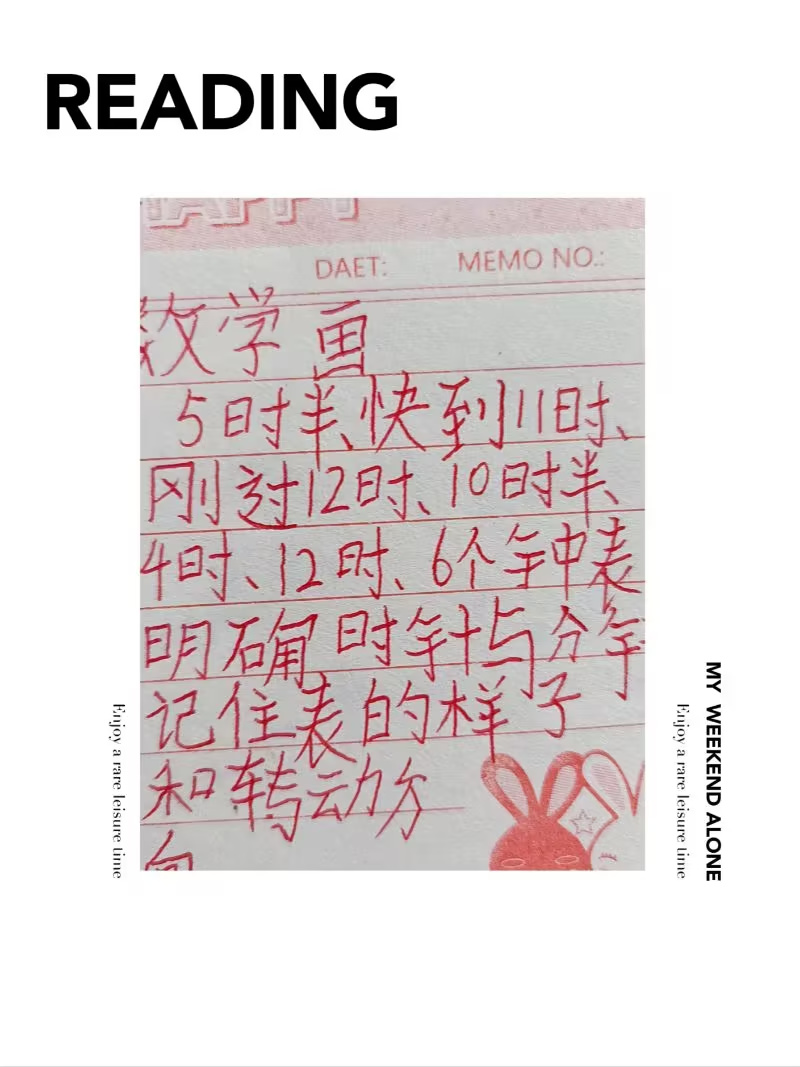 READING
HAPPY
DAET: MEMO NO.:
数学 画
5时半、快到11时、
刚过12时、10时半、
4时、12时、6个钟表
明确 时针与分针
记住表的样子
和转动方
向
Enjoy a rare leisure time
MY WEEKEND ALONE
Enjoy a rare leisure time